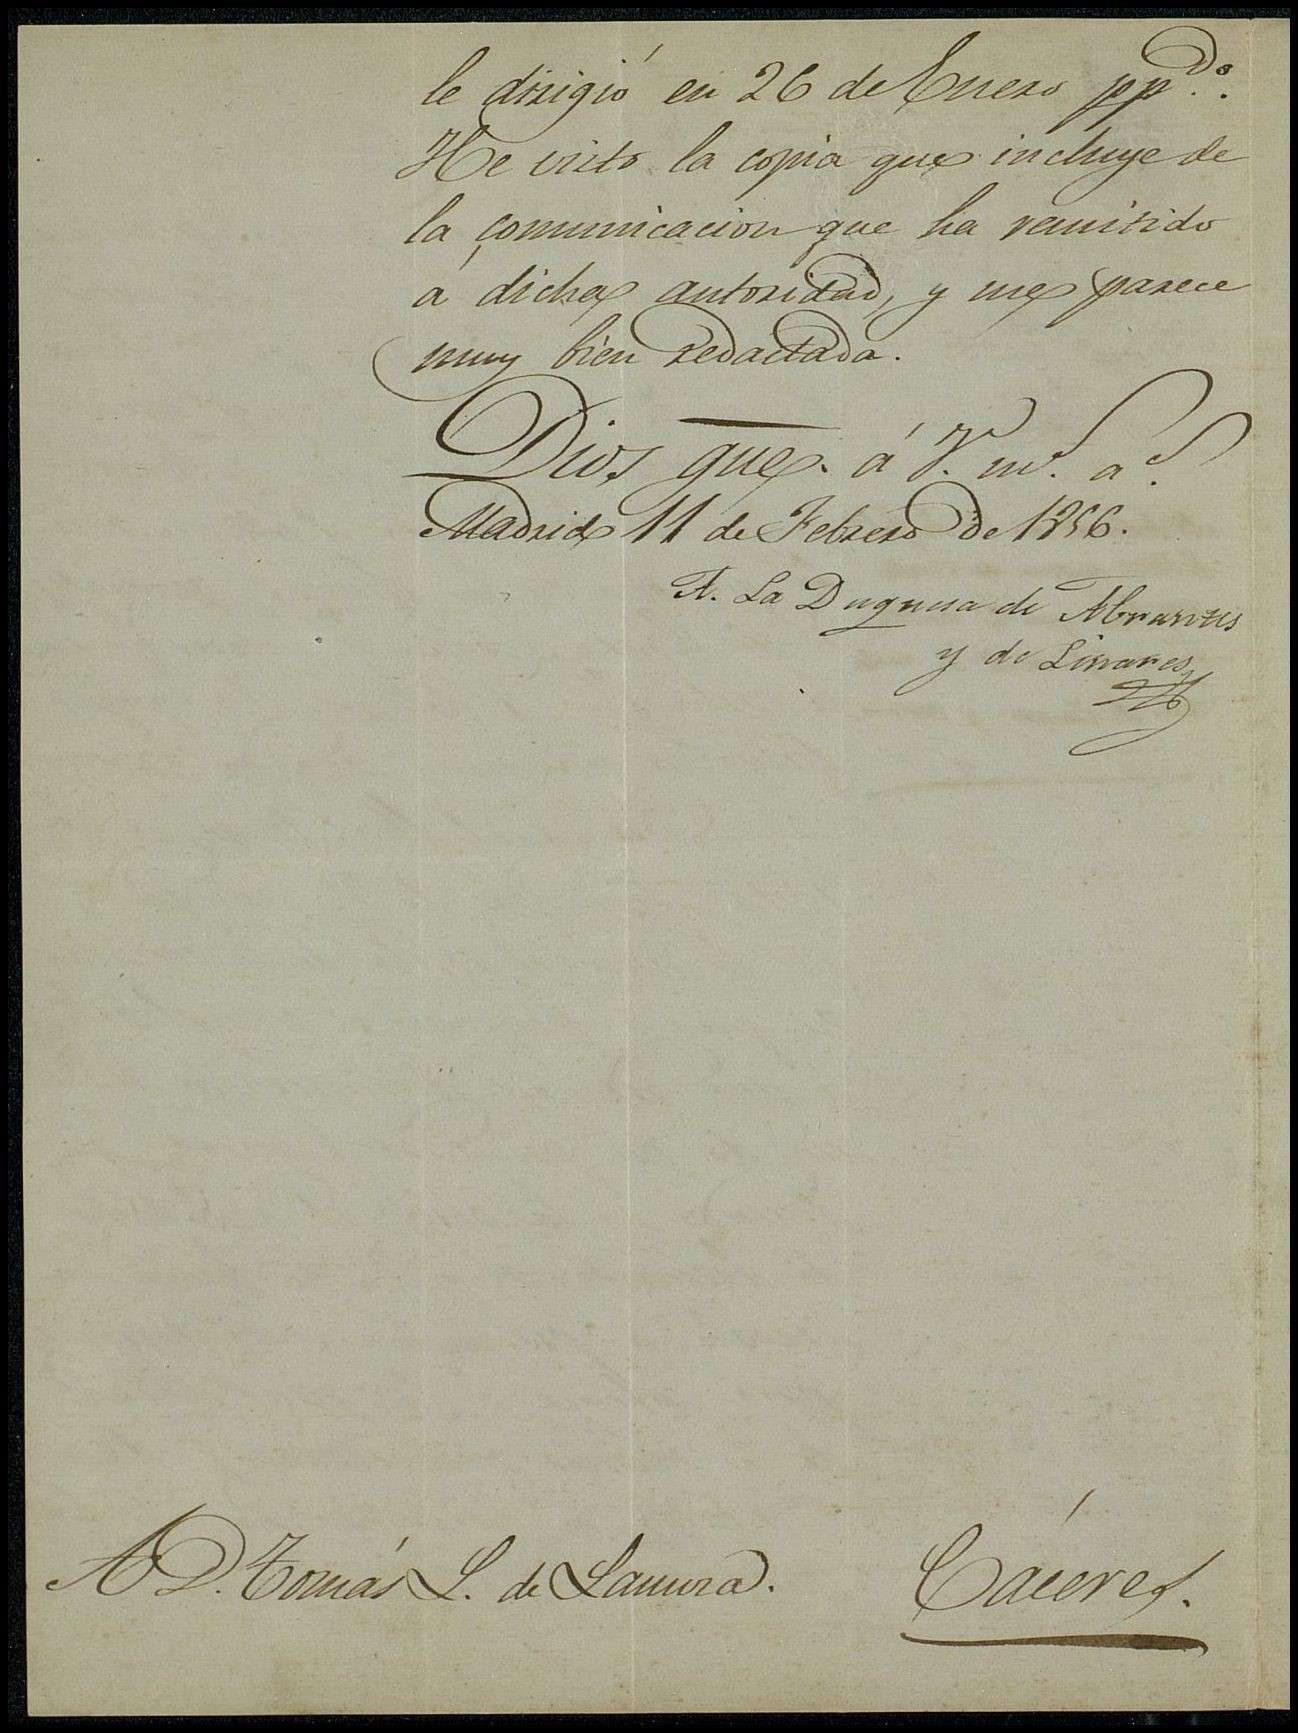 le dirigió en 26 de Enero pp.do.
He visto la copia que incluye de
la comunicacion que ha remitido
á dicha autoridad, y me parece
muy bien redactada.
Dios gue. á V. m.s a.s
Madrid 11 de Febrero de 1856.
La Duquesa de Abrantes
y de Linares
A D. Tomás L. de
Cáceres.